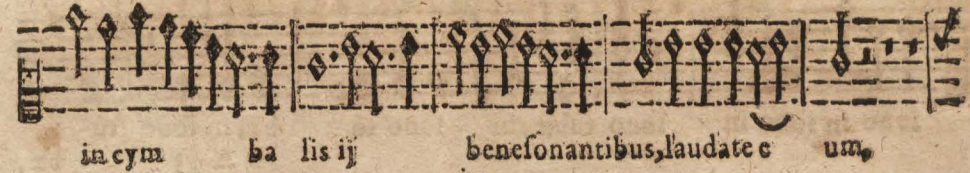 in cym ba lis ij beneſonantibus, laudate e um,